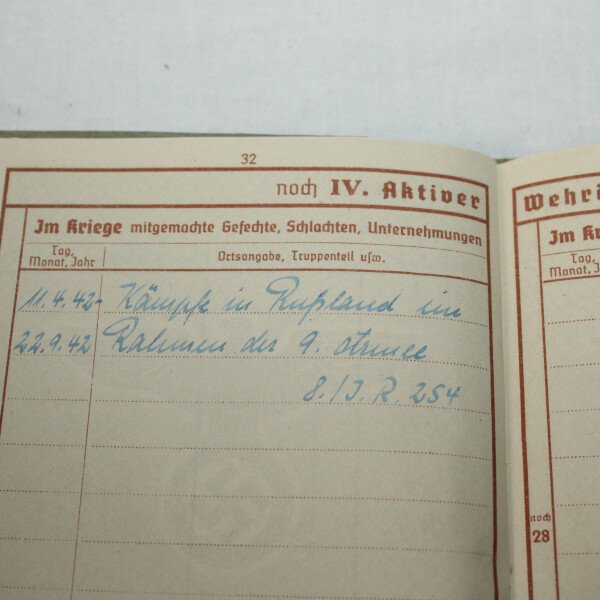 32
noch IV. Aktiver
Im Kriege mitgemachte Gefechte, Schlachten, Unternehmungen
Tag, Monat, Jahr
Ortsangabe, Truppenteil usw.
11.4.42- Kämpfe in Rußland im
22.9.42 Rahmen der 9. Armee
8./J.R. 254
Wehrd
Im Kri
Tag,
Monat, Ja
noch
28